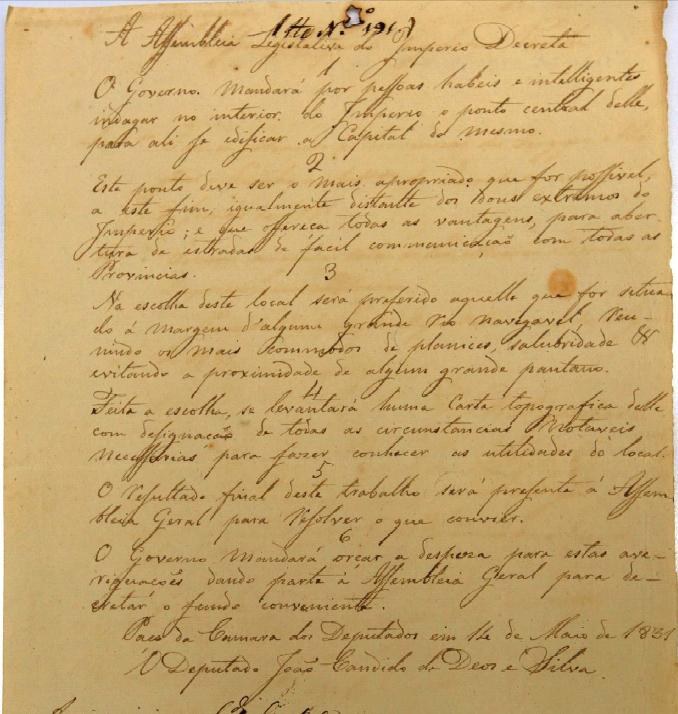 A Assembleia Legislativa do Imperio Decreta
1
O Governo. Mandará por pessoas habeis e intelligentes
indagar no interior do Imperio o ponto central delle,
para ali se edificar a Capital do mesmo.
2
Este ponto deve ser o mais apropriado que for possivel,
a este fim, igualmente distante dos dous extremos do
Imperio; e que offereca todas as vantagens, para aber-
tura de estradas de facil communicação com todas as
Provincias.
3
Na escolha deste local será preferido aquelle que for situa
do á margem d'algum grande rio navegavel, reu-
nindo os mais commodos de planices, salubridade &
evitando a proximidade de algum grande pantano.
4
Feita a escolha, se levantará huma Carta topografica delle
com designação de todas as circunstancias Notaveis
Necessarias para fazer conhecer as utilidades do local.
5
O resultado final deste trabalho será presente á Assem
bleia Geral para resolver o que convier.
6
O Governo Mandará orcar a despeza para estas ave-
riguacões dando parte á Assembleia Geral para de-
cretar o fundo conveniente.
Paco da Camara dos Deputados em 14 de Maio de 1831
O Deputado João Candido de Deos e Silva